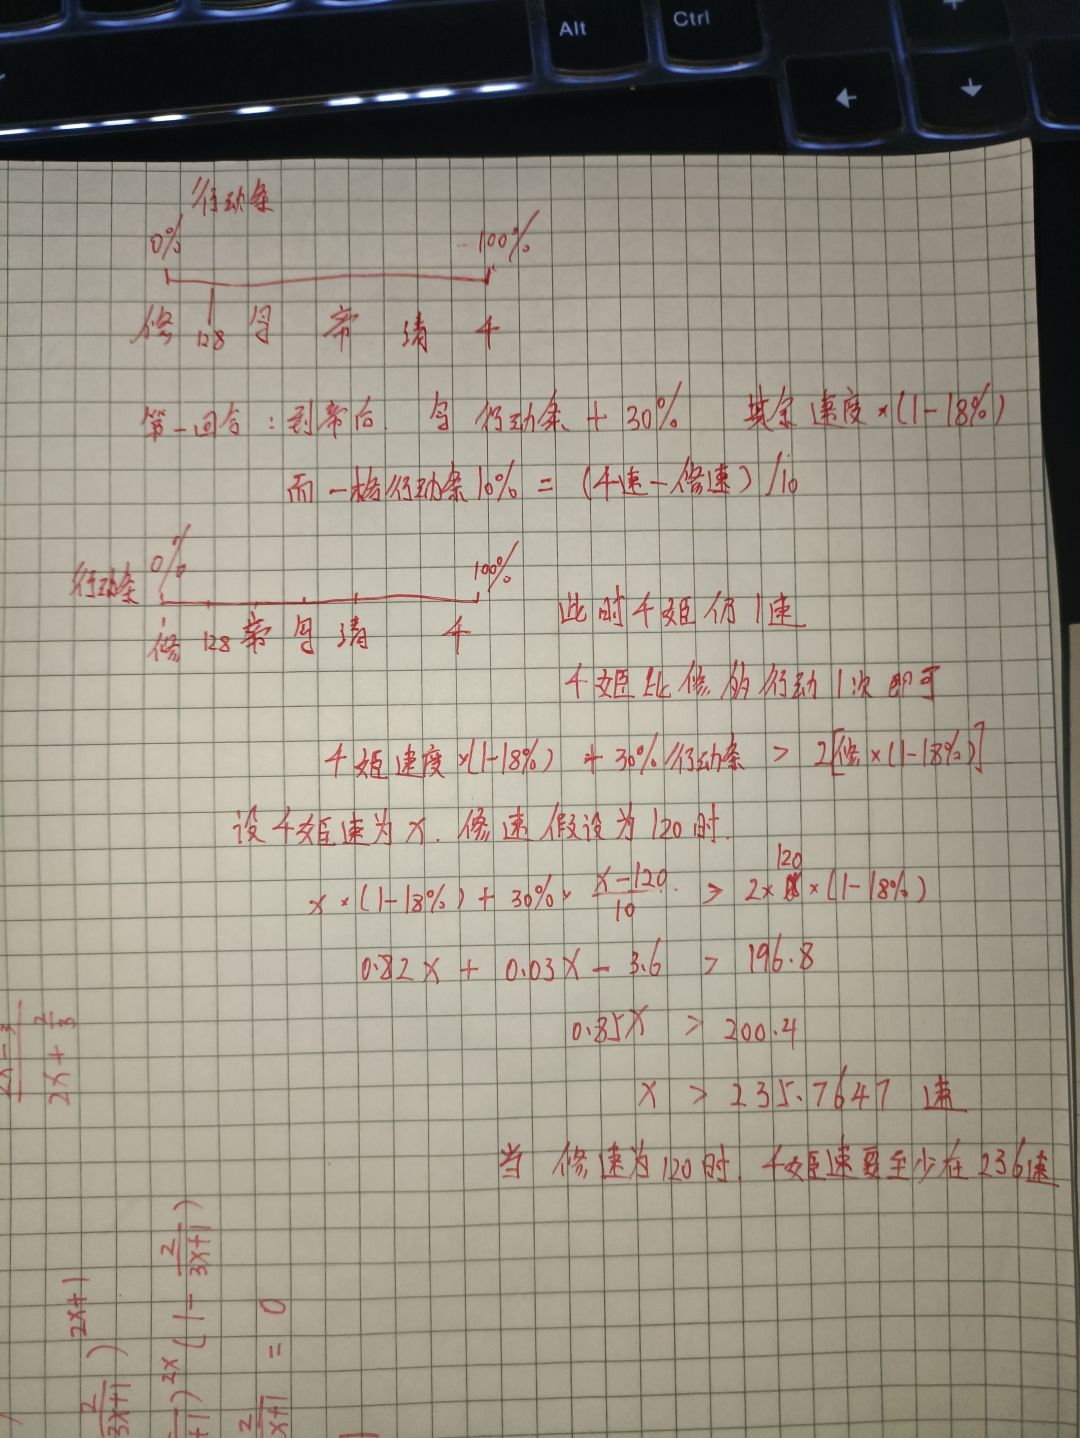 Alt
Ctrl
行动条
0% 100%
修 128 司 帝 清 千
第一回合:到帝后. 司 行动条 + 30% 其余速度×(1-18%)
而一格行动条10% = (千速-修速)/10
行动条 0% 100%
修 128 帝 司 清 千
此时千姬仍1速
千姬比修多行动1次即可
千姬速度×(1-18%) + 30%行动条 > 2[修×(1-18%)]
设千姬速为x. 修速假设为120时.
x×(1-18%) + 30%× (x-120)/10 > 2×120×(1-18%)
0.82x + 0.03x - 3.6 > 196.8
0.85x > 200.4
x > 235.7647 速
当 修速为120时. 千姬速要至少在236速
2x + 2/3
2x+1
2/(3x+1) )
)^2x (1 - 2/(3x+1))
= 0